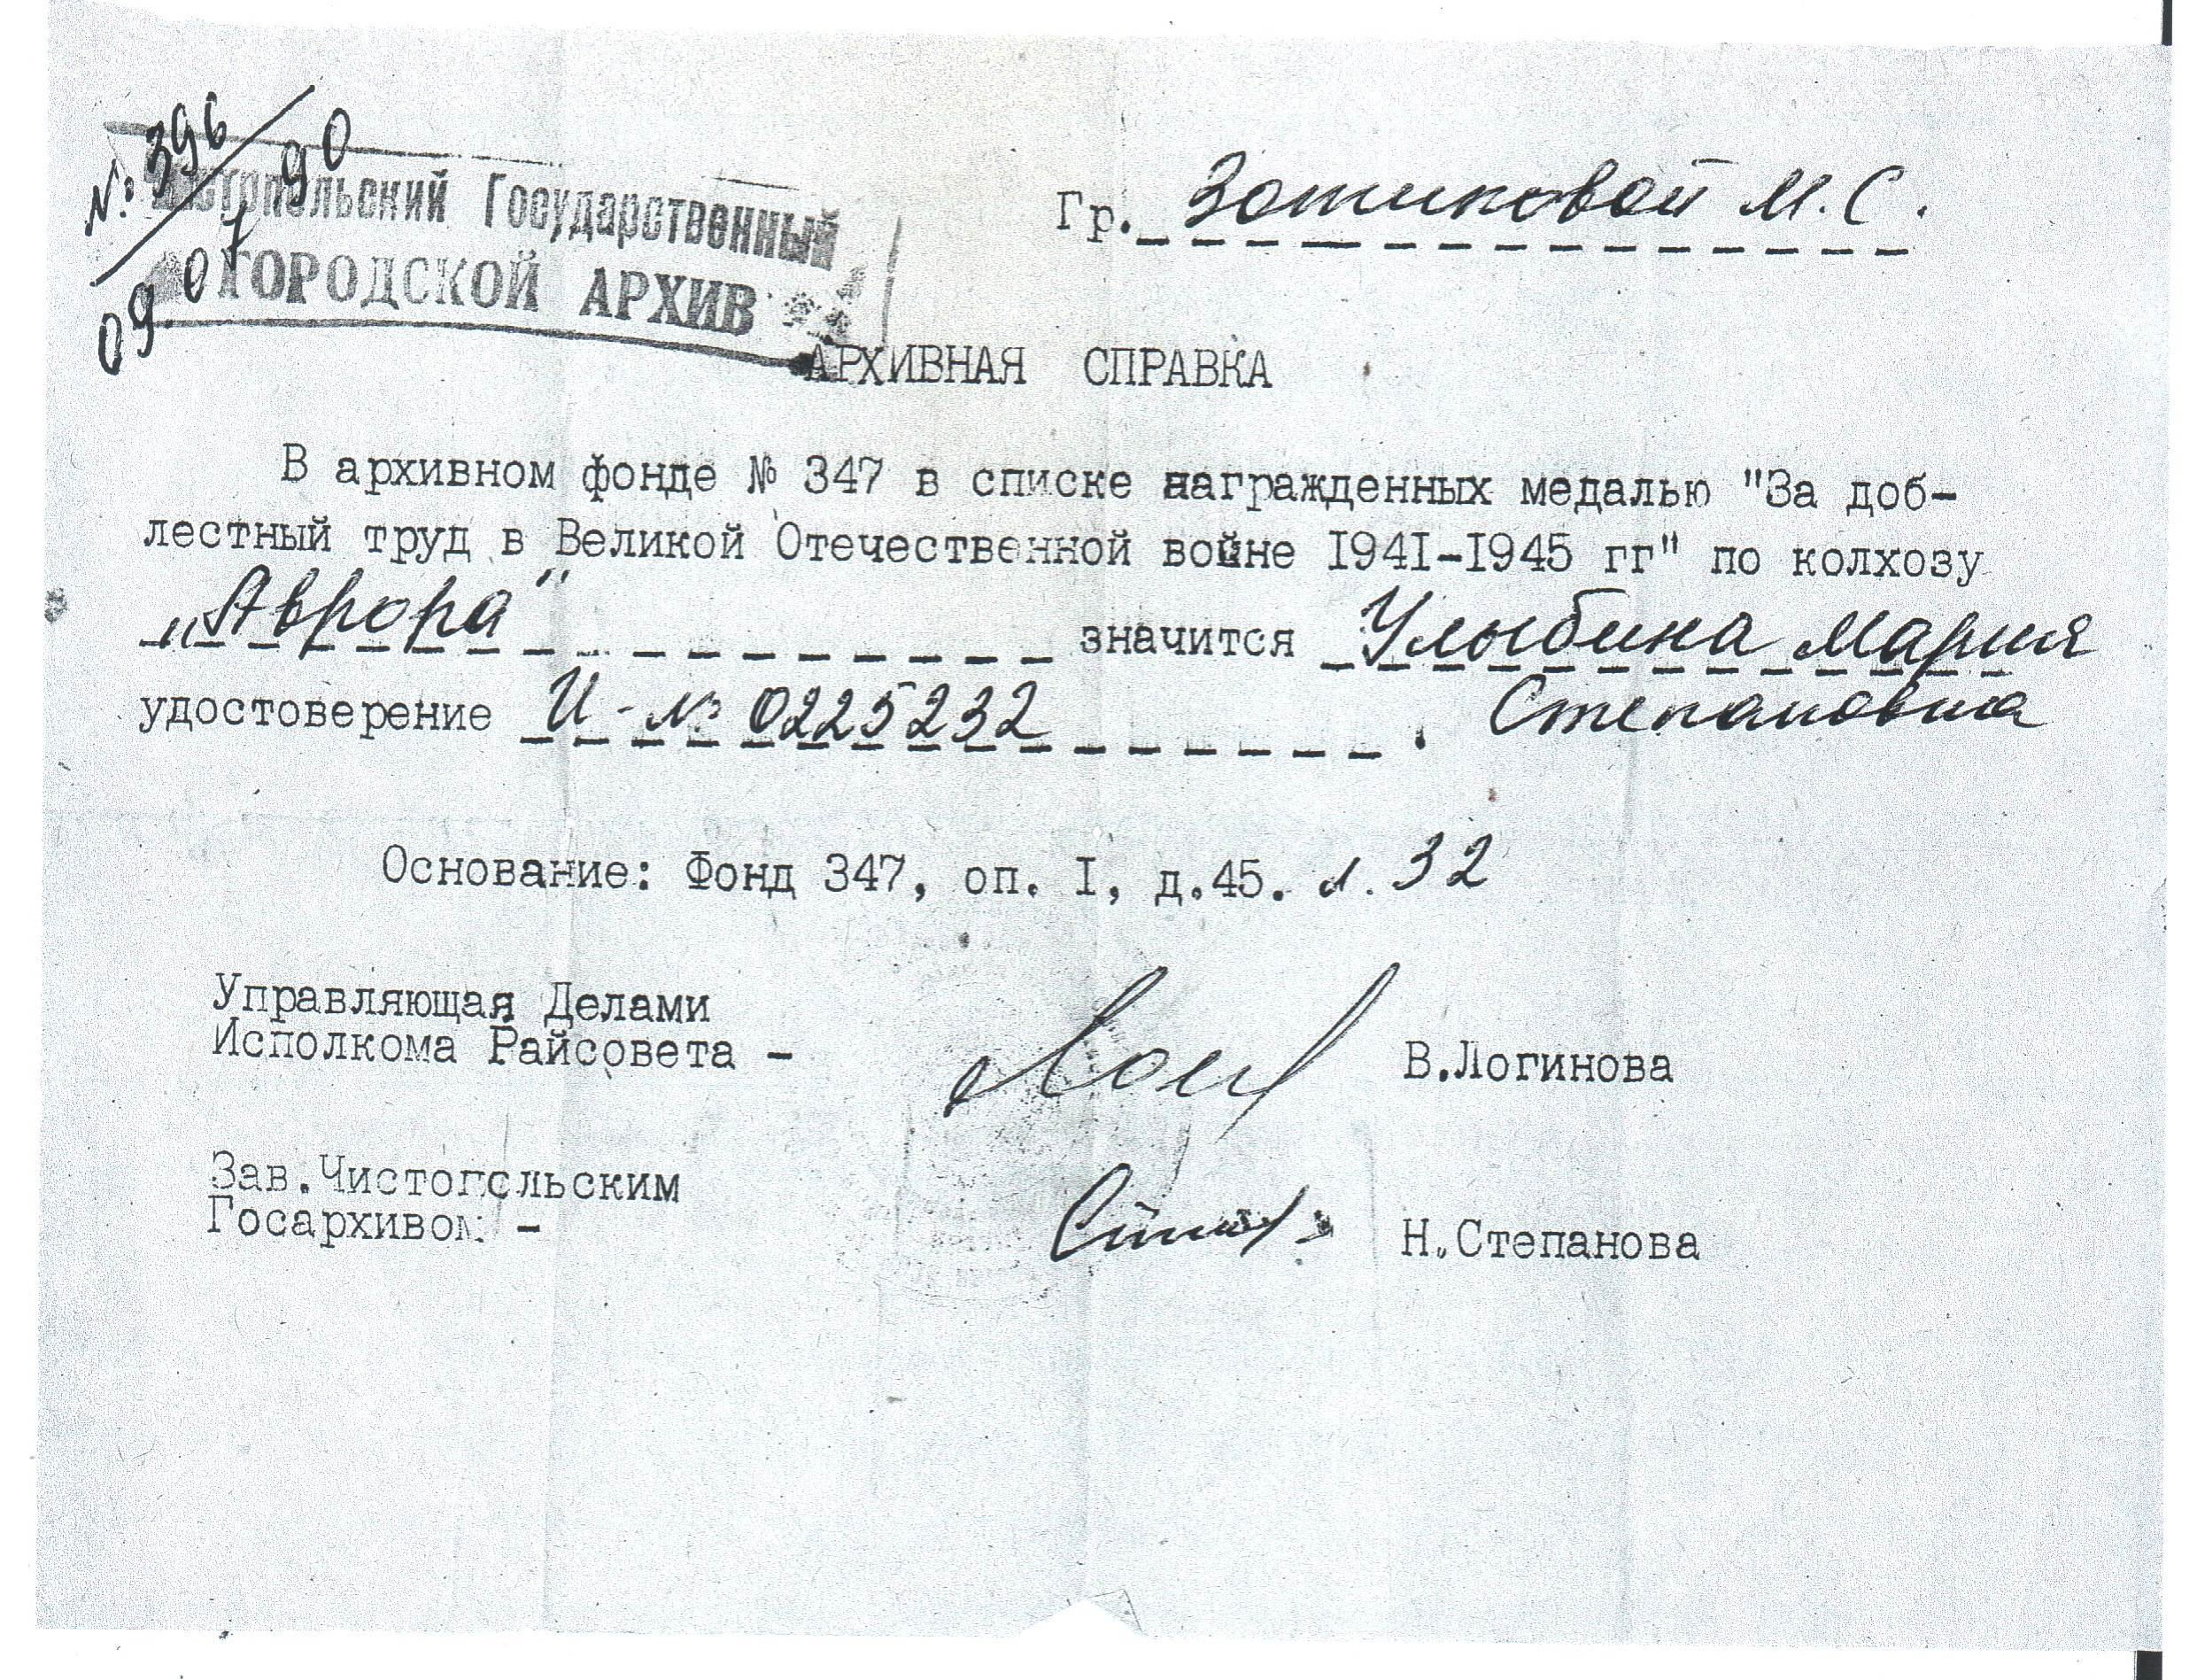 № 396
09 07 90
Чистопольский Государственный
ГОРОДСКОЙ АРХИВ
Гр. Зотиковой М.С.
АРХИВНАЯ СПРАВКА
В архивном фонде № 347 в списке награжденных медалью "За доб-
лестный труд в Великой Отечественной войне 1941-1945 гг" по колхозу
„Аврора" значится Улыбина Мария
удостоверение И-№ 0225232. Степановна
Основание: Фонд 347, оп. I, д.45. л. 32
Управляющая Делами
Исполкома Райсовета - В.Логинова
Зав.Чистопольским
Госархивом - Н.Степанова